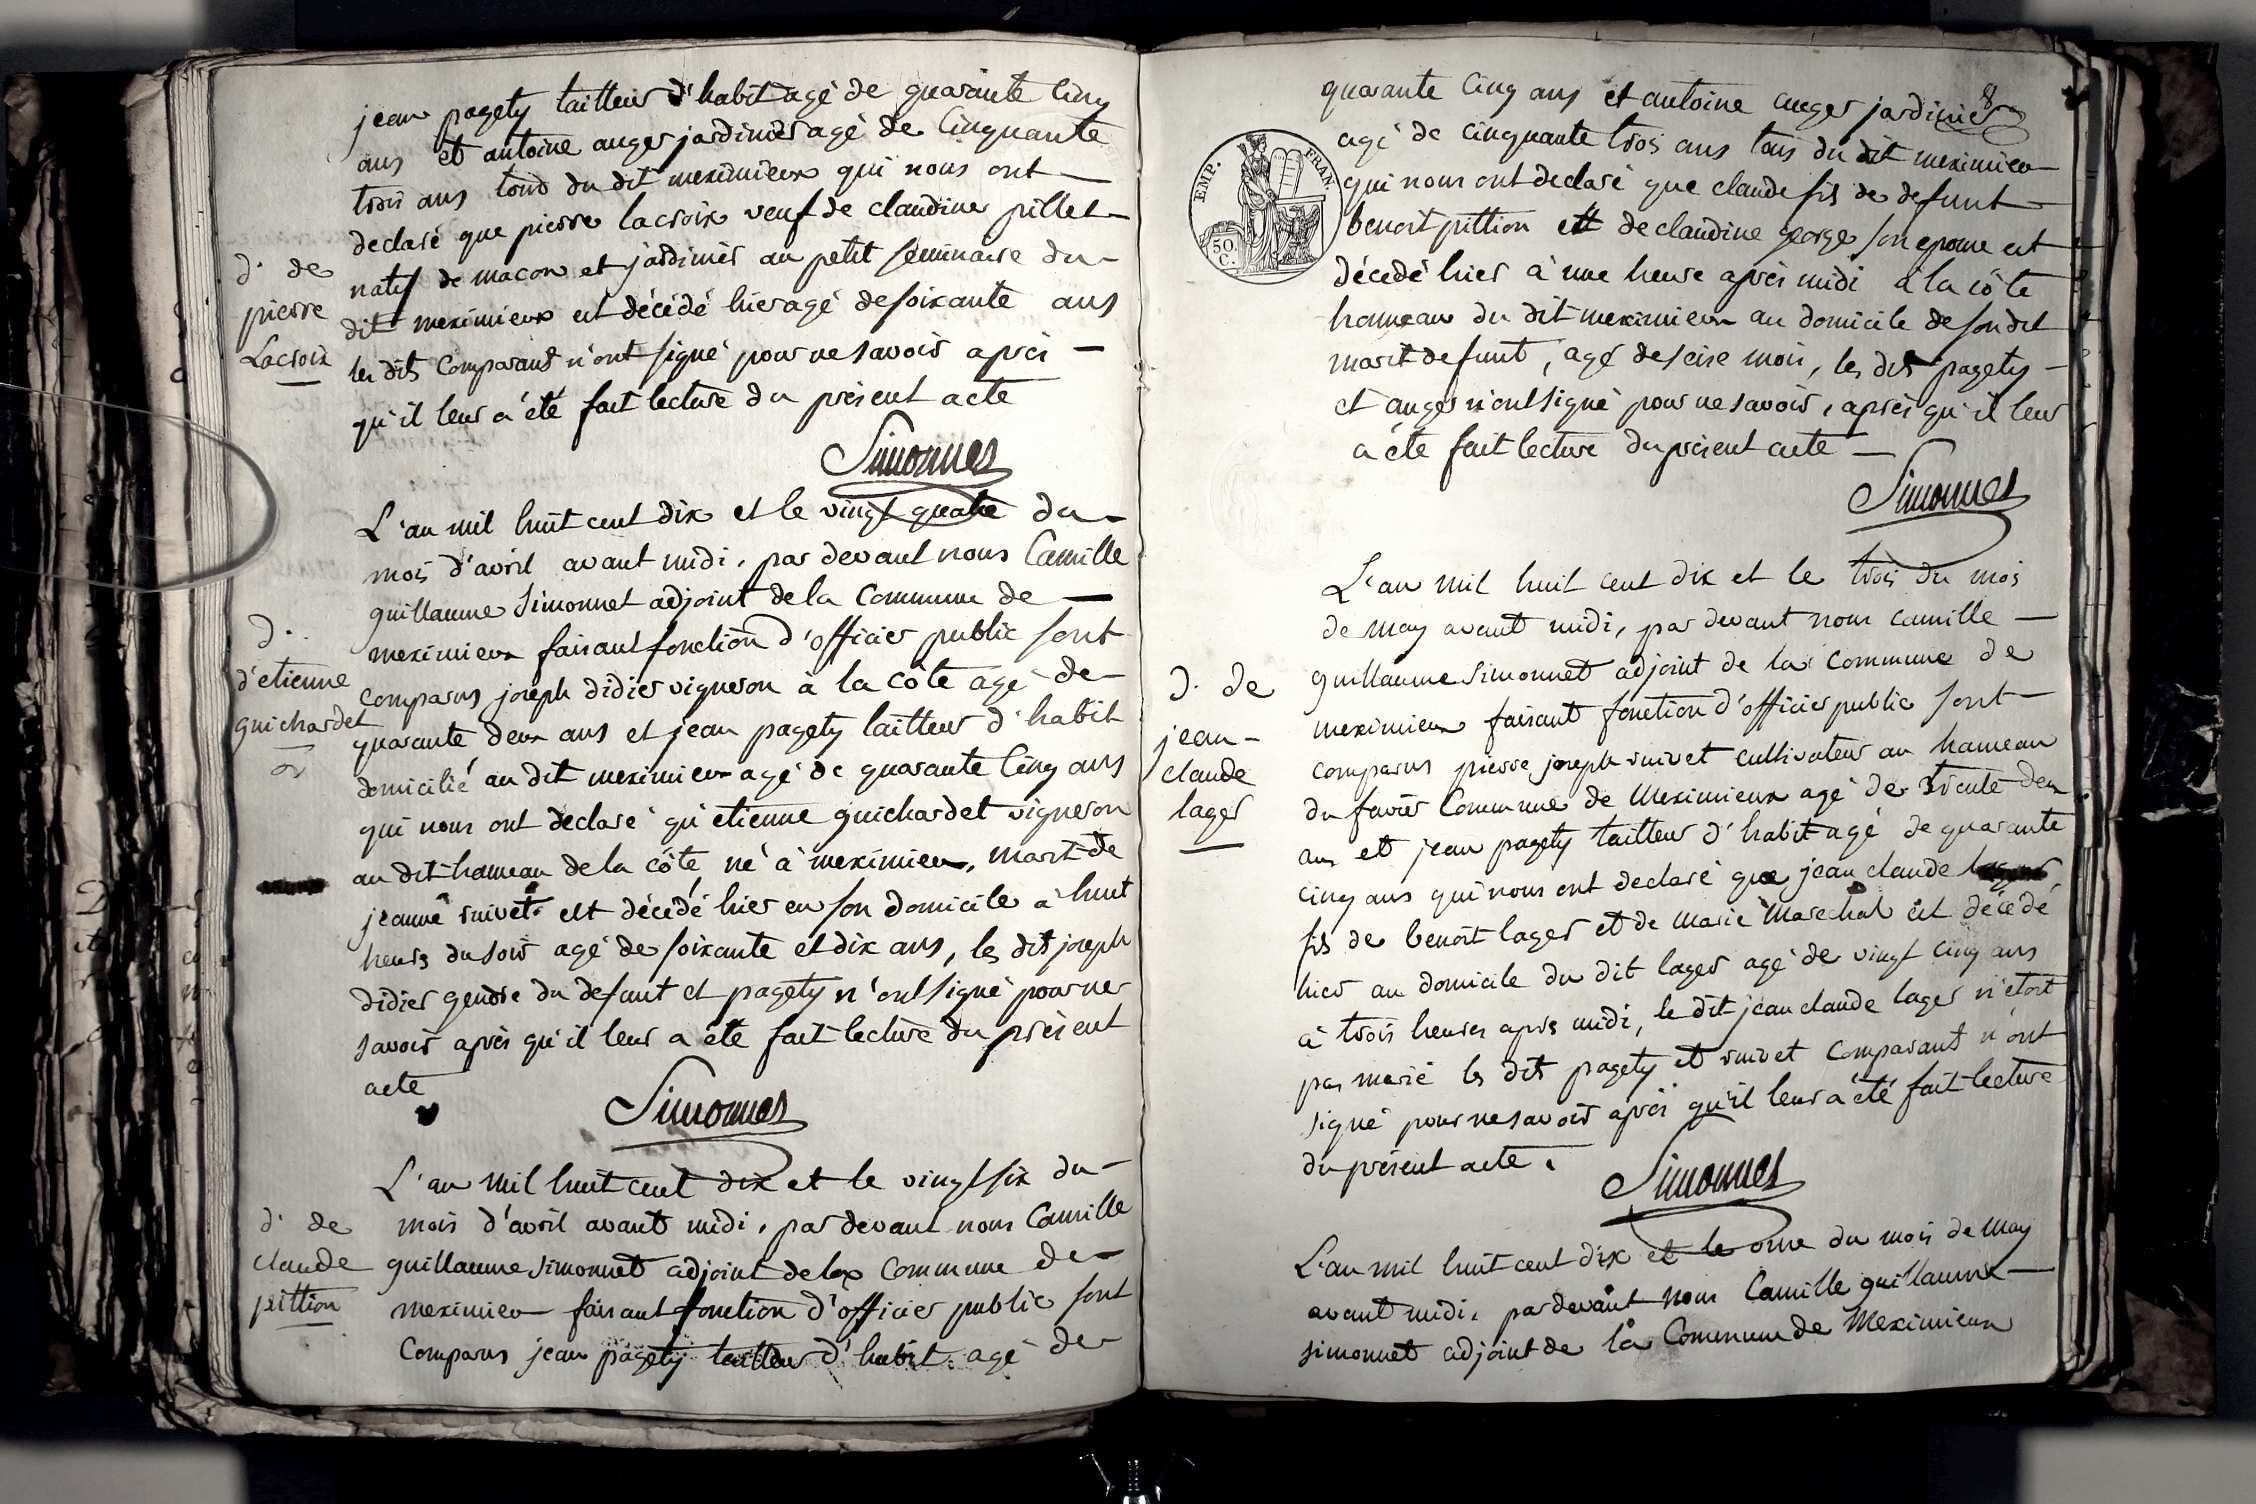 jean pagety tailleur d'habit agé de quarante cinq
ans et antoine auger jardinier agé de cinquante
trois ans tous du dit meximieux qui nous ont
declaré que pierre lacroix veuf de claudine pillet
natif de macon et jardinier au petit seminaire du
d. de
pierre
Lacroix
dit meximieux est décédé hier agé de soixante ans
les dits comparants n'ont signé pour ne savoir aprés
qu'il leur a été fait lecture du présent acte
Simonnet
L'an mil huit cent dix et le vingt quatre du
mois d'avril avant midi, par devant nous Camille
guillaume simonnet adjoint de la Commune de
meximieux faisant fonction d'officier public sont
d.
d'etienne
guichardet
comparus joseph didier vigneron à la côte agé de
quarante deux ans et jean pagety tailleur d'habit
domicilié au dit meximieux agé de quarante cinq ans
qui nous ont declaré qu'etienne guichardet vigneron
au dit hameau de la côte né à meximieux, marit de
jeanne ruivet est décédé hier en son domicile a huit
heures du soir agé de soixante et dix ans, les dits joseph
didier gendre du defunt et pagety n'ont signé pour ne
savoir aprés qu'il leur a été fait lecture du présent
acte
Simonnet
L'an mil huit cent dix et le vingt six du
d. de
claude
pittion
mois d'avril avant midi, par devant nous Camille
guillaume simonnet adjoint de la commune de
meximieux faisant fonction d'officier public sont
Comparus jean pagety tailleur d'habit agé de
8
quarante cinq ans et antoine auger jardinier
agé de cinquante trois ans tous du dit meximieux
EMP. FRAN.
50.
C.
qui nous ont declaré que claude fils de defunt
benoit pittion et de claudine george son epouse est
décedé hier à une heure aprés midi à la côte
hameau du dit meximieux au domicile de son dit
marit defunt, agé de seise mois, les dits pagety
et auger n'ont signé pour ne savoir, aprés qu'il leur
a été fait lecture du présent acte
Simonnet
L'an mil huit cent dix et le trois du mois
de may avant midi, par devant nous camille
guillaume simonnet adjoint de la commune de
d. de
jean
claude
lager
meximieux faisant fonction d'officier public sont
comparus pierre joseph ruivet cultivateur au hameau
du Commune de Meximieux agé de trente deux
ans et jean pagety tailleur d'habit agé de quarante
cinq ans qui nous ont declaré que jean claude
fils de benoit lager et de marie Marechal est décedé
hier au domicile du dit lager agé de vingt cinq ans
à trois heures aprés midi, le dit jean claude lager n'étoit
pas marié les dits pagety et ruivet comparants n'ont
signé pour ne savoir aprés qu'il leur a été fait lecture
du présent acte.
Simonnet
L'an mil huit cent dix et le onse du mois de May
avant midi, par devant nous Camille guillaume
simonnet adjoint de la Commune de Meximieux